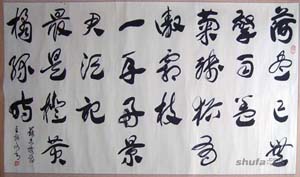 荷尽已無
擎雨盖
菊残猶有
傲霜枝
一年好景
君须记
最是橙黄
橘绿时
shufa